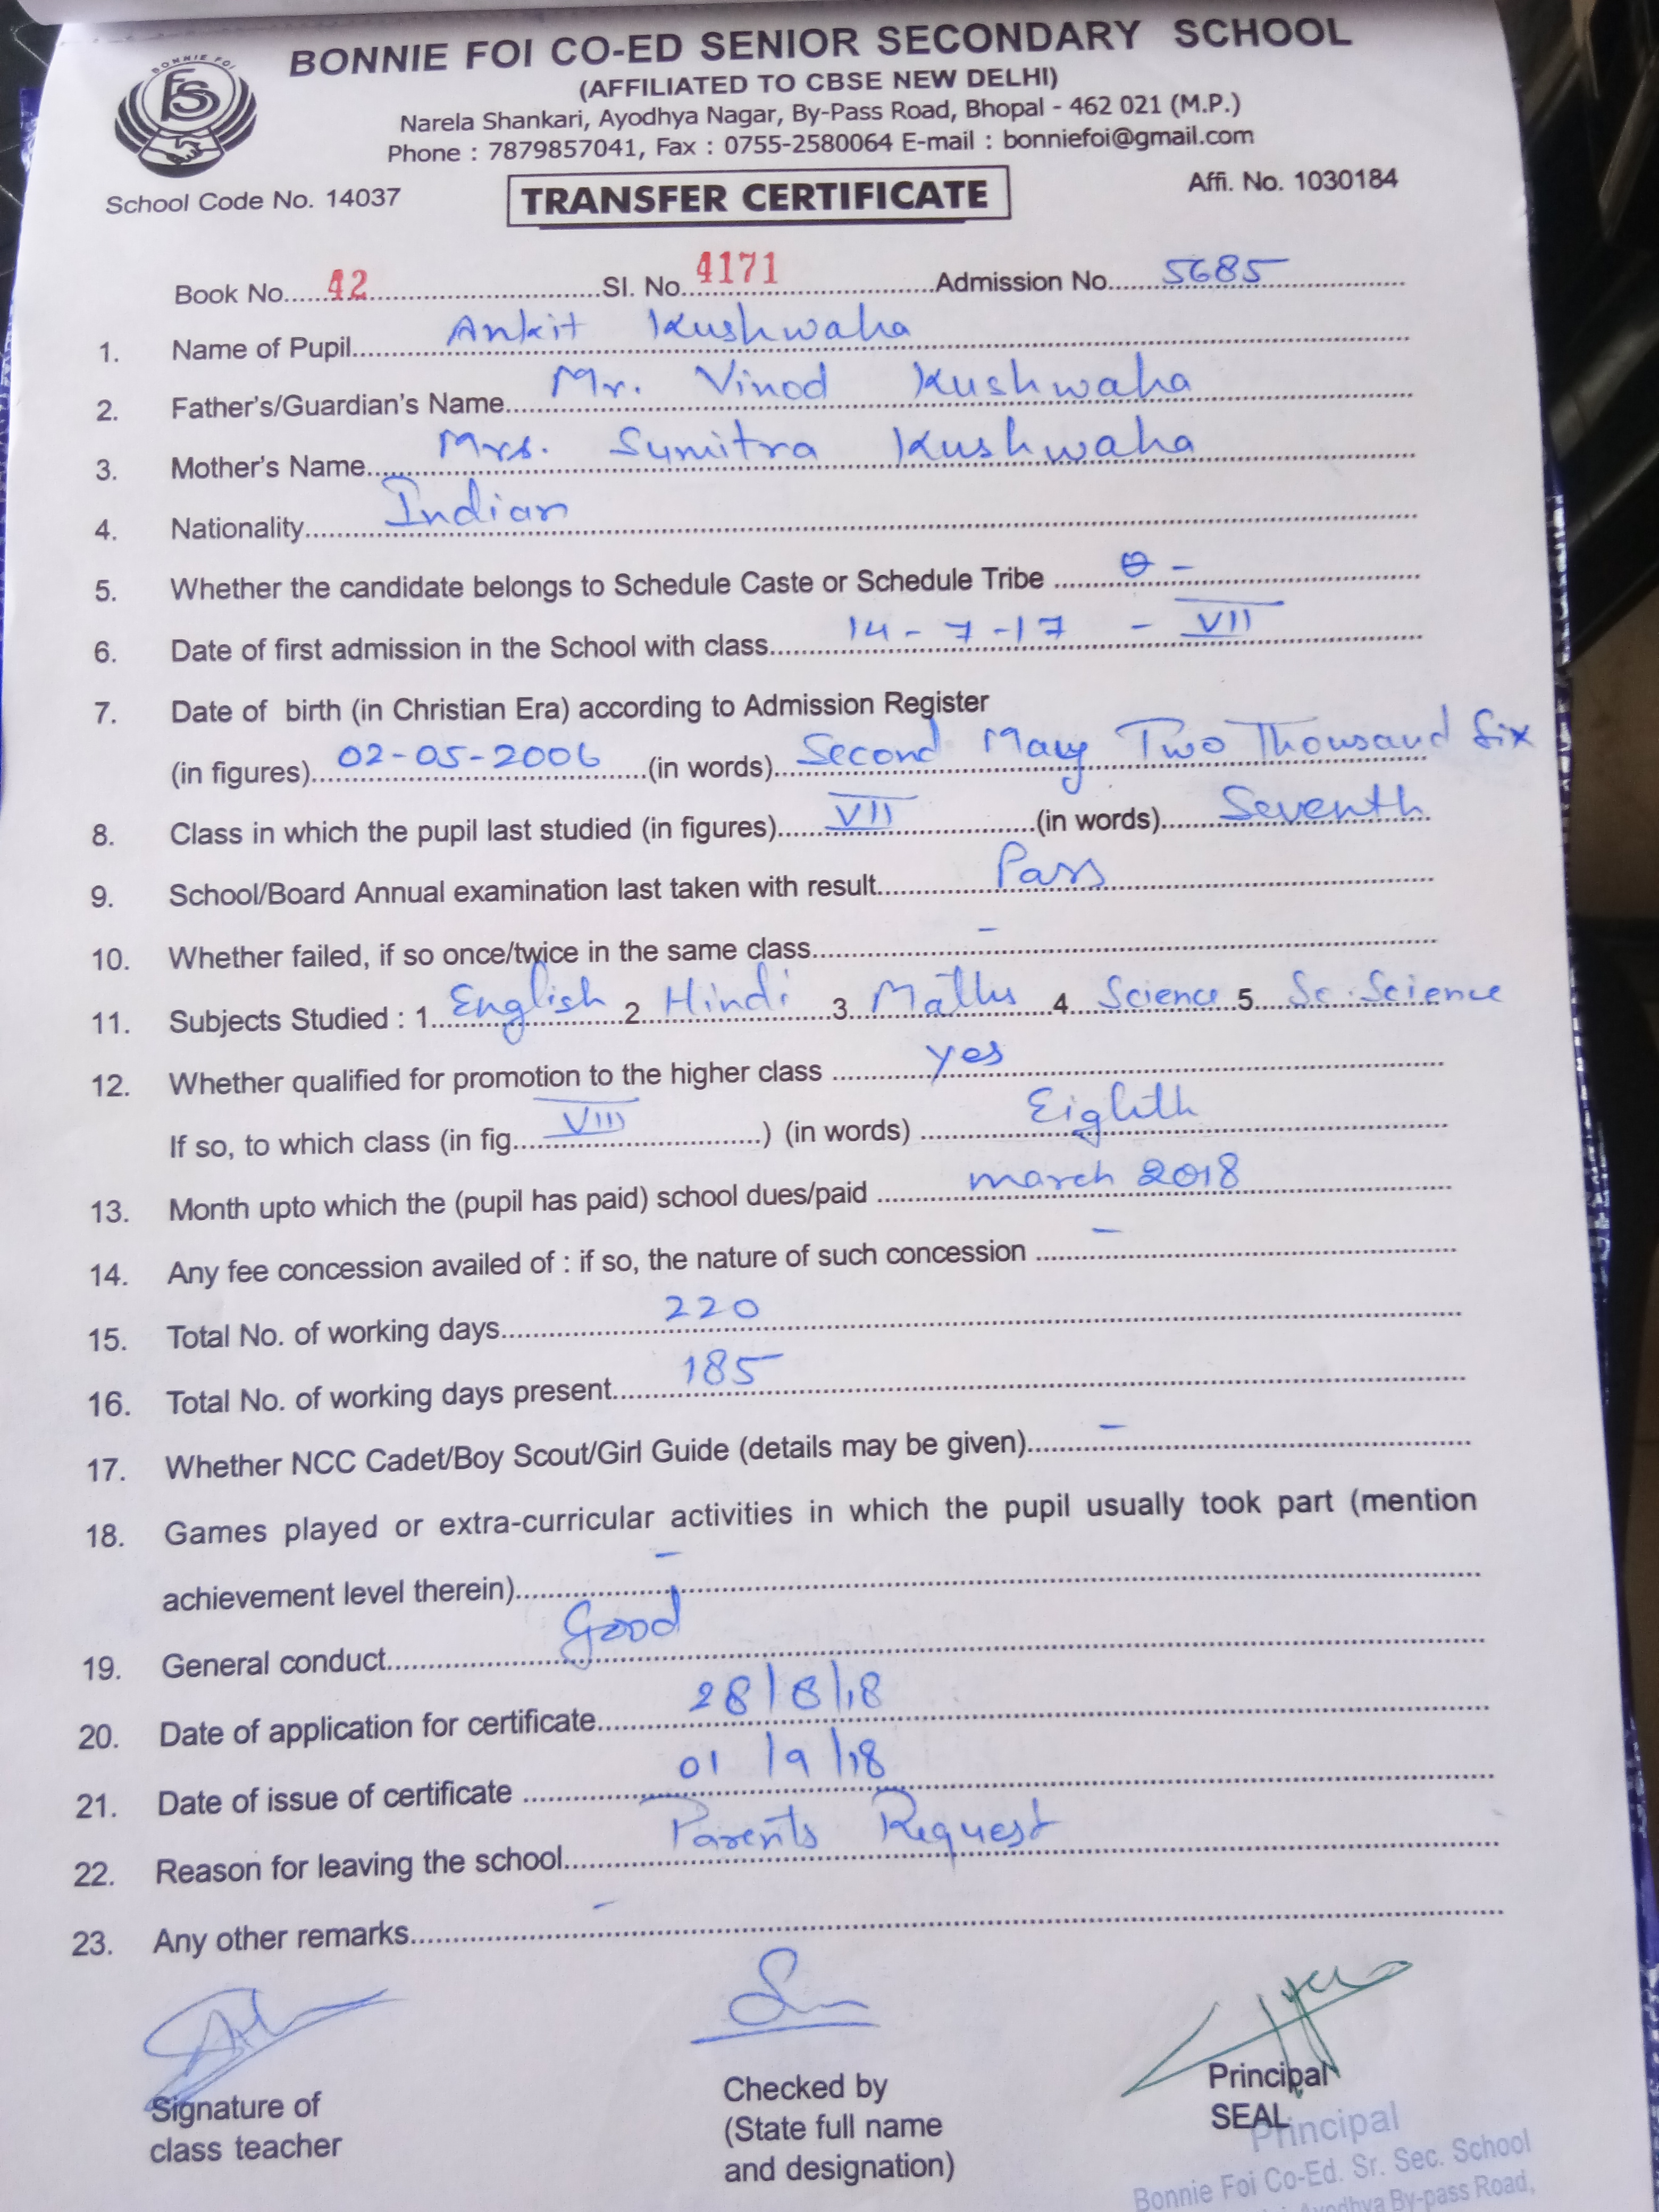 BONNIE FOI
FS
BONNIE FOI CO-ED SENIOR SECONDARY SCHOOL
(AFFILIATED TO CBSE NEW DELHI)
Narela Shankari, Ayodhya Nagar, By-Pass Road, Bhopal - 462 021 (M.P.)
Phone : 7879857041, Fax : 0755-2580064 E-mail : bonniefoi@gmail.com
School Code No. 14037 TRANSFER CERTIFICATE Affi. No. 1030184
Book No. 42 Sl. No. 4171 Admission No. 5685
1. Name of Pupil Ankit Kushwaha
2. Father's/Guardian's Name Mr. Vinod Kushwaha
3. Mother's Name Mrs. Sumitra Kushwaha
4. Nationality Indian
5. Whether the candidate belongs to Schedule Caste or Schedule Tribe -
6. Date of first admission in the School with class 14-7-17 - VII
7. Date of birth (in Christian Era) according to Admission Register
(in figures) 02-05-2006 (in words) Second May Two Thousand Six
8. Class in which the pupil last studied (in figures) VII (in words) Seventh
9. School/Board Annual examination last taken with result Pass
10. Whether failed, if so once/twice in the same class -
11. Subjects Studied : 1. English 2. Hindi 3. Maths 4. Science 5. Sc. Science
12. Whether qualified for promotion to the higher class yes
If so, to which class (in fig. VIII ) (in words) Eighth
13. Month upto which the (pupil has paid) school dues/paid march 2018
14. Any fee concession availed of : if so, the nature of such concession -
15. Total No. of working days 220
16. Total No. of working days present 185
17. Whether NCC Cadet/Boy Scout/Girl Guide (details may be given) -
18. Games played or extra-curricular activities in which the pupil usually took part (mention
achievement level therein) -
19. General conduct Good
20. Date of application for certificate 28/8/18
21. Date of issue of certificate 01/9/18
22. Reason for leaving the school Parents Request
23. Any other remarks -
Signature of
class teacher
Checked by
(State full name
and designation)
Principal
SEAL
Principal
Bonnie Foi Co-Ed. Sr. Sec. School
Ayodhya By-pass Road,